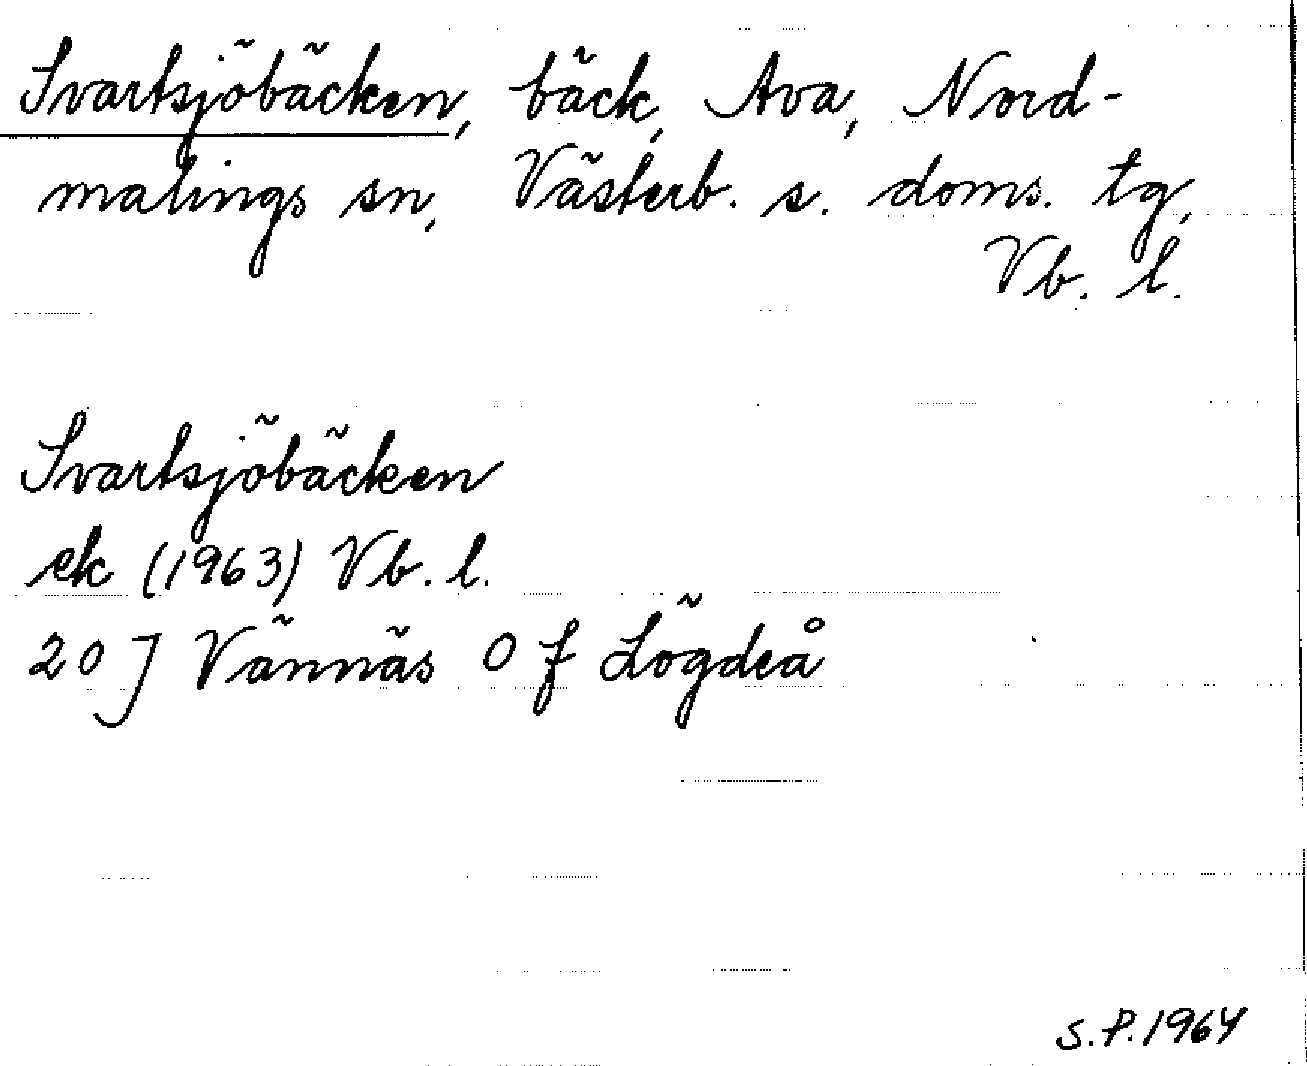 Svartsjöbäcken, bäck, Ava, Nord-
malings sn, Västerb. s. doms. tg,
Vb. l.
Svartsjöbäcken
ek (1963) Vb. l.
20 J Vännäs 0 f Lögdeå
S.P.1964